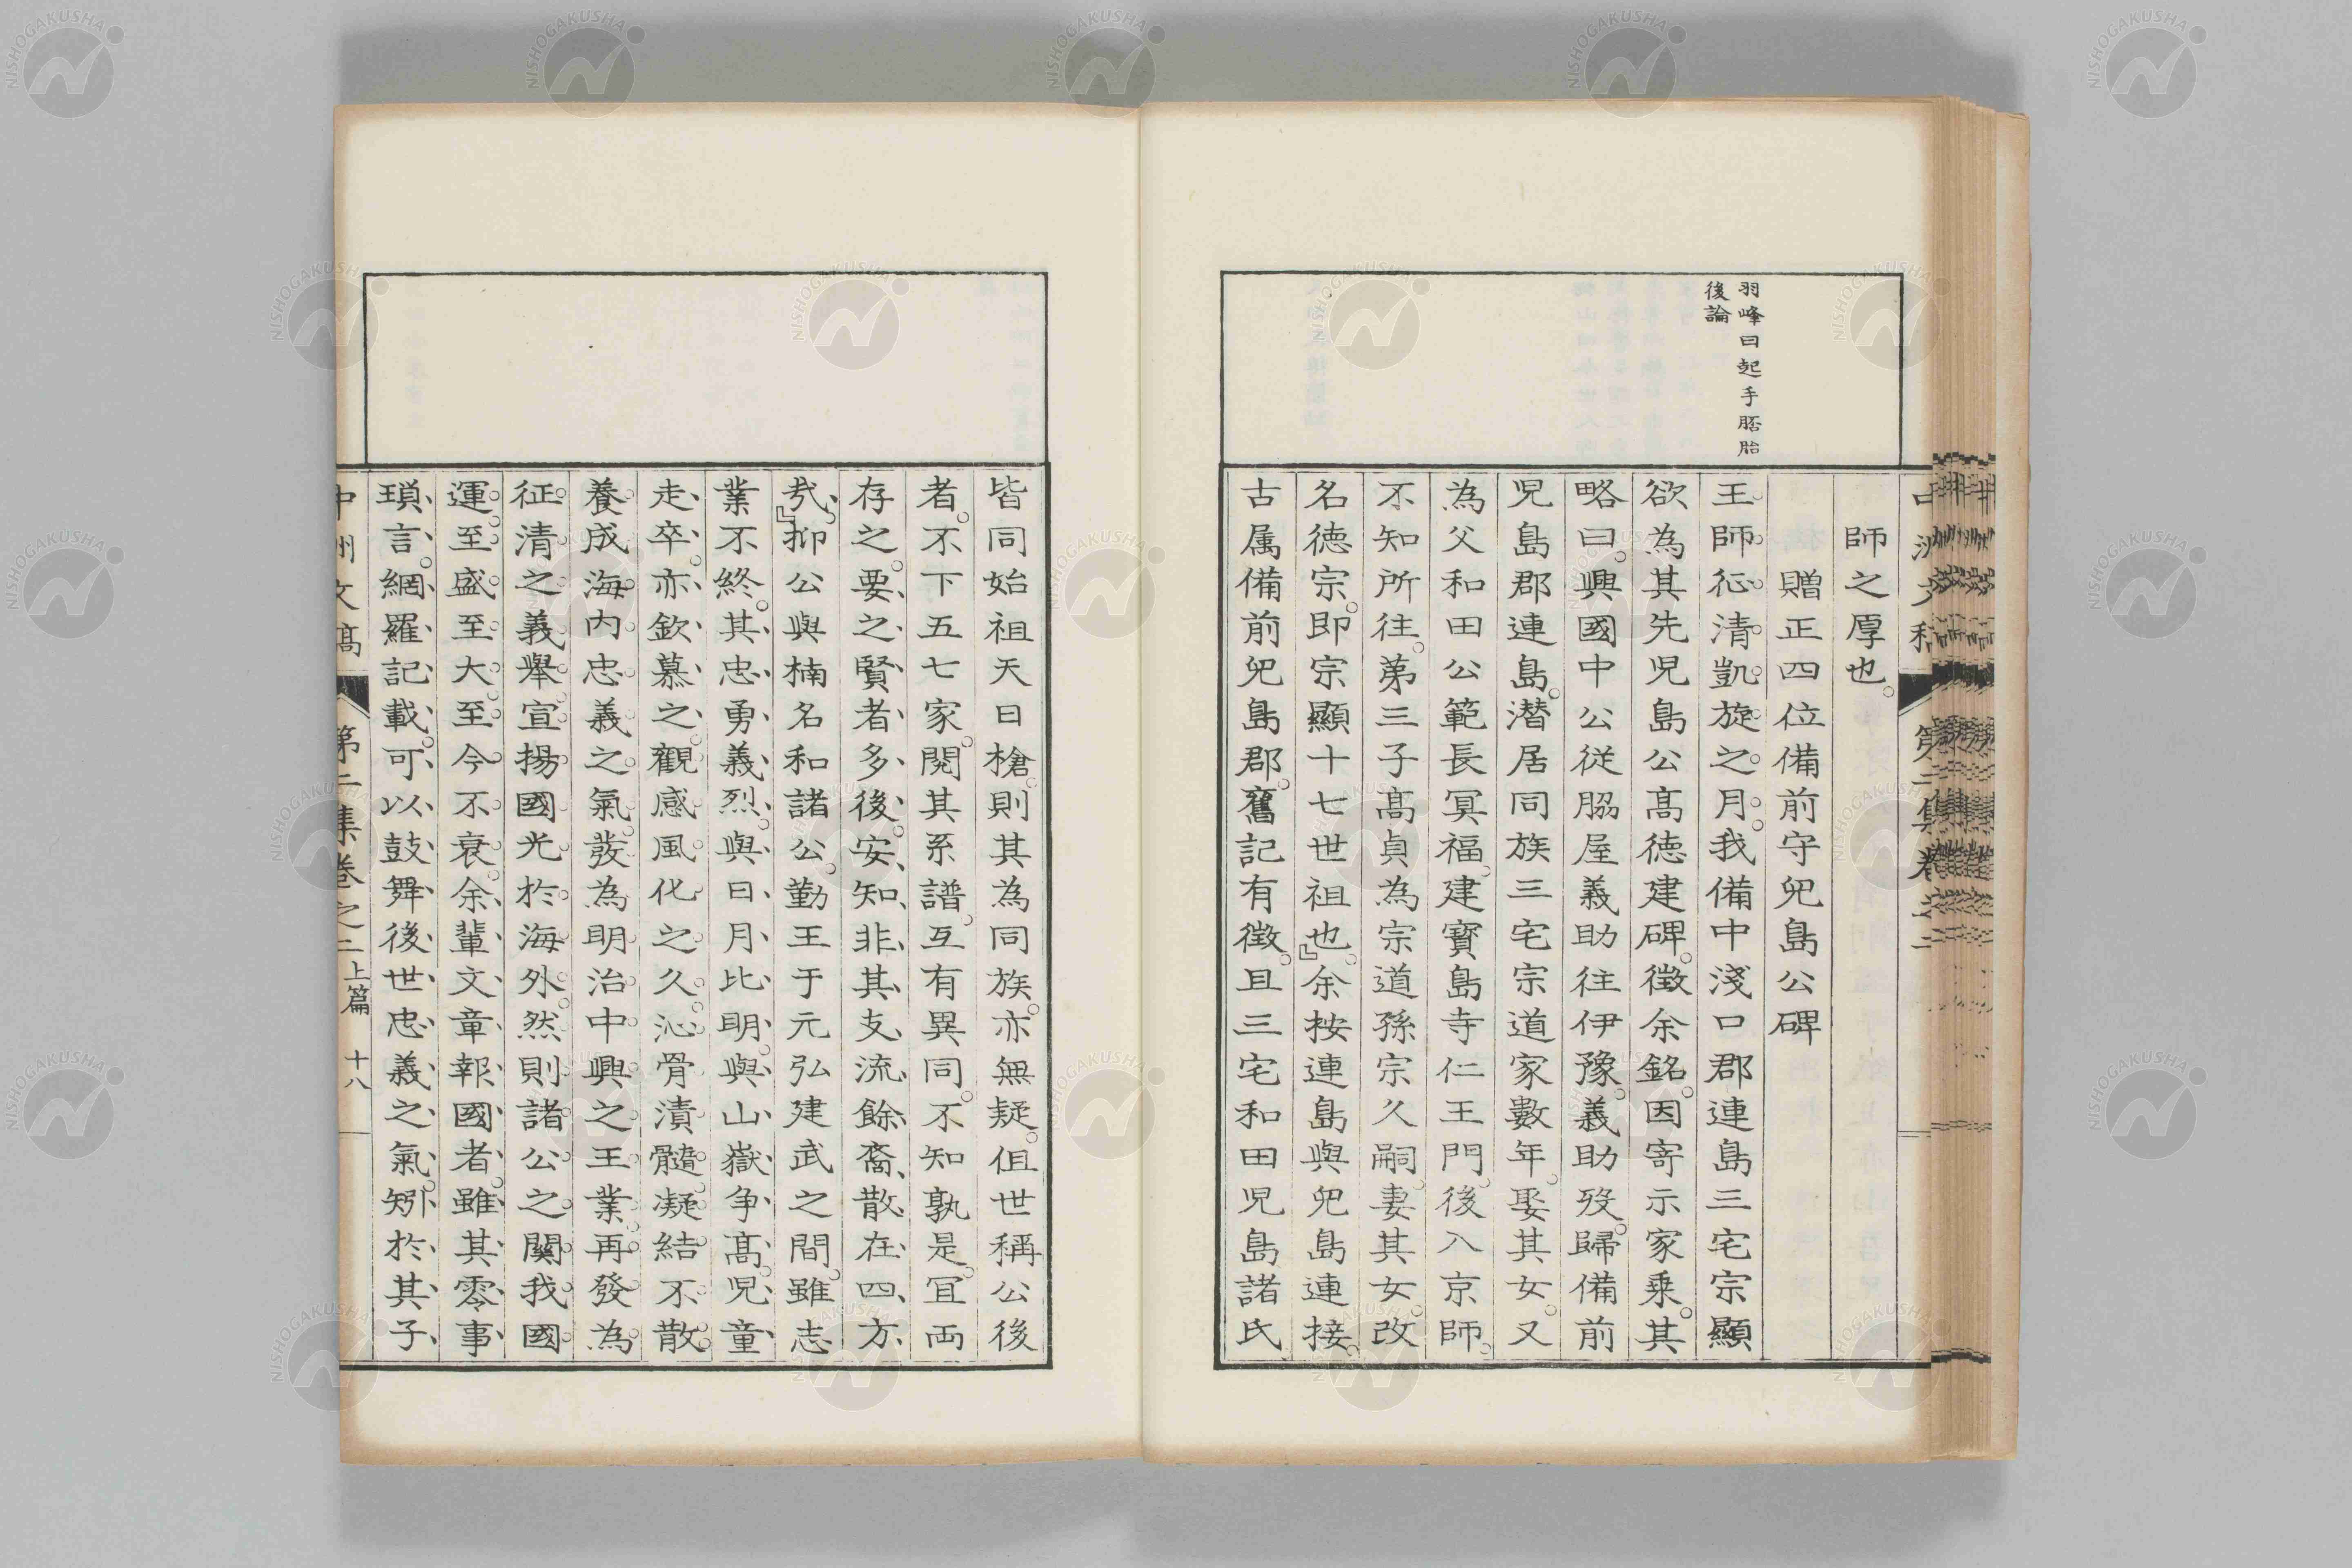 羽峰曰起手胚胎
後論
師之厚也。
贈正四位備前守兒島公碑
王師征清凱旋之月。我備中淺口郡連島三宅宗顯
欲為其先児島公高徳建碑。徴余銘。因寄示家乗。其
略曰。興國中公従脇屋義助往伊豫。義助歿。歸備前
児島郡連島。潜居同族三宅宗道家數年。娶其女。又
為父和田公範長冥福。建寶島寺仁王門。後入京師。
不知所往。第三子高貞為宗道孫宗久嗣。妻其女。改
名徳宗。即宗顯十七世祖也。』余按連島與兒島連接。
古属備前兒島郡。舊記有徴。且三宅和田児島諸氏
皆同始祖天日槍。則其為同族。亦無疑。但世稱公後
者。不下五七家。閲其系譜。互有異同。不知孰是。冝両
存之。要之、賢者多後。安知非其支流餘裔、散在四方
哉。』抑公與楠名和諸公。勤王于元弘建武之間。雖志
業不終。其忠勇義烈。與日月比明。與山嶽争髙。児童
走卒。亦欽慕之。觀感風化之久。沁骨漬髓。凝結不散。
養成海内忠義之氣。發為明治中興之王業。再發為
征清之義舉。宣揚國光於海外。然則諸公之關我國
運。至盛至大。至今不衰。余輩文章報國者。雖其零事
瑣言。網羅記載。可以鼓舞後世忠義之氣。矧於其子
中洲文稿
第二集卷之二
上篇
十八